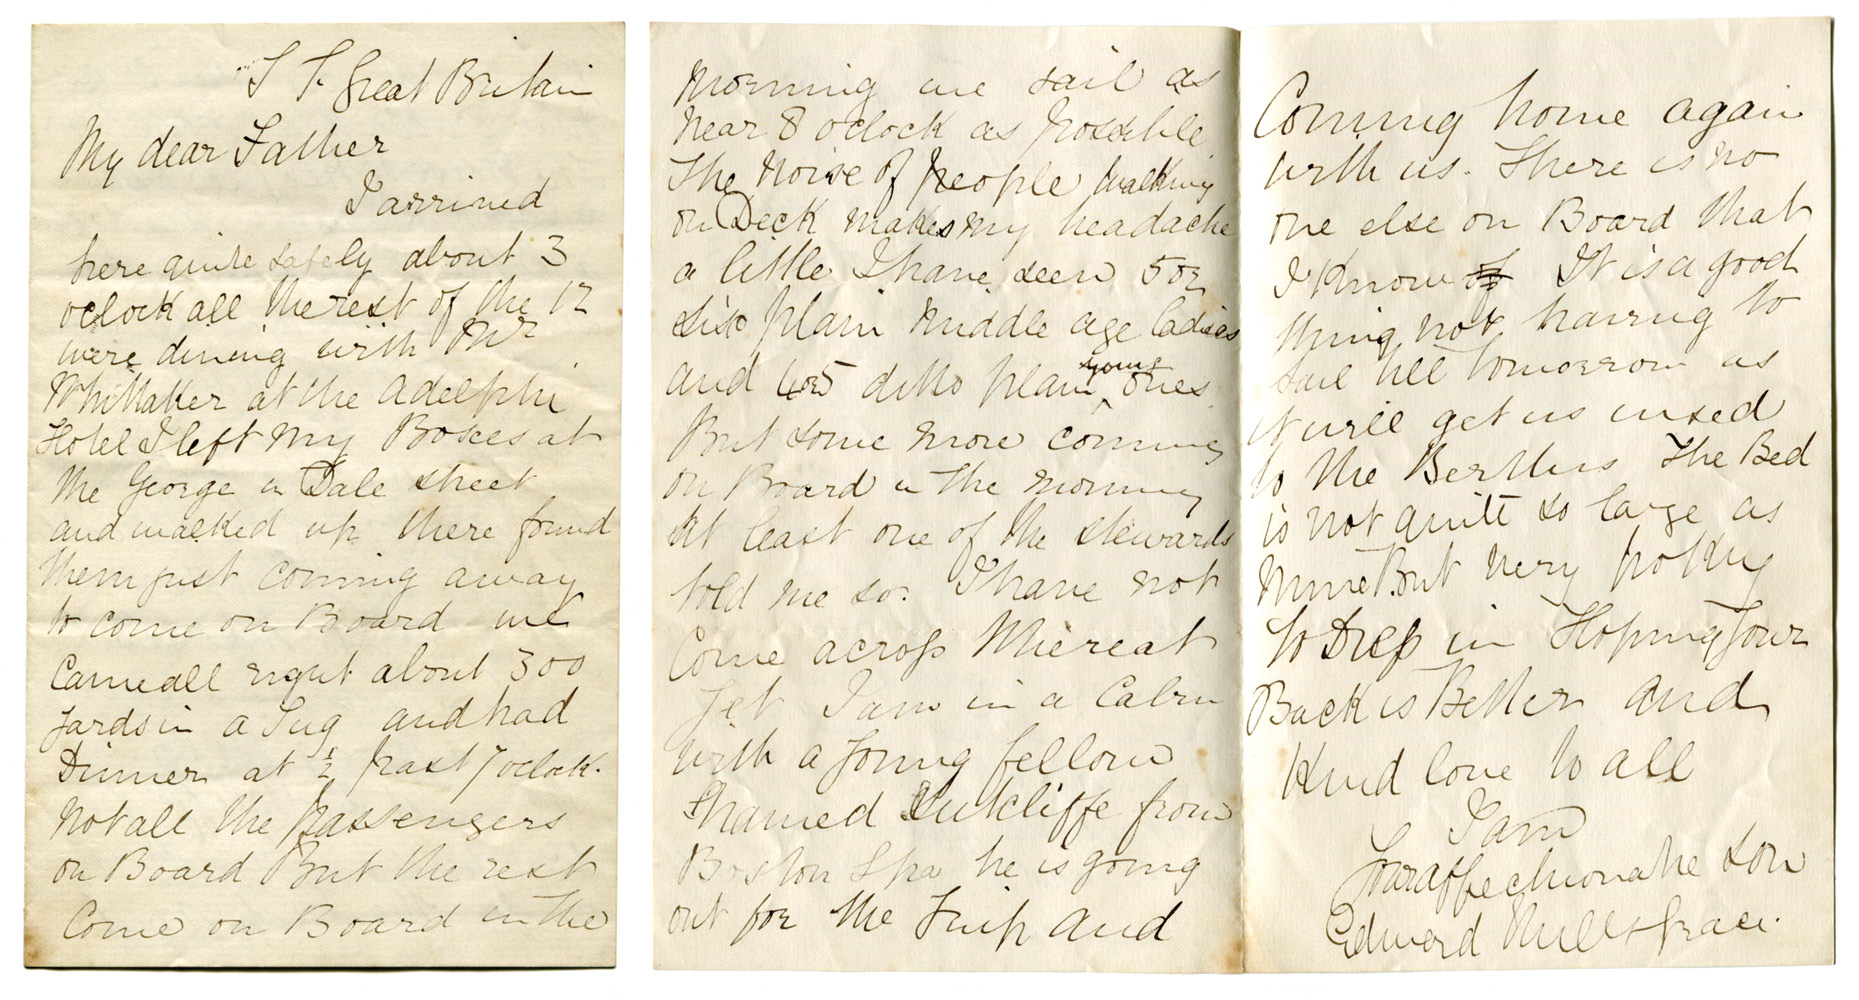 S S. Great Britain
My dear Father
I arrived
here quite safely about 3
oclock all the rest of the 12
were dining with Mr
Whittaker at the Adelphi
Hotel I left my Boxes at
the George in Dale street
and walked up there found
them just coming away
to come on Board we
Came all right about 300
yards in a Tug and had
Dinner at ½ past 7 oclock.
Not all the Passengers
on Board But the rest
Come on Board in the
morning we sail as
near 8 oclock as possible
The Noise of people walking
on Deck makes my headache
a little I have seen 5 or
six plain middle age ladies
and 4 or 5 ditto plain young ones
But some more coming
on Board in the morning
At least one of the stewards
told me so. I have not
Come across Miereat
yet I am in a Cabin
with a young fellow
named Sutcliffe from
Boston Spa he is going
out for the Trip and
Coming home again
with us. There is no
one else on Board that
I Know of It is a good
thing not having to
sail till tomorrow as
it will get us used
to the Berths The Bed
is not quite so large as
Mine But very
to Step in Hoping Your
Back is Better and
Kind love to all
I am
Your affectionate son
Edward Mills Grace.